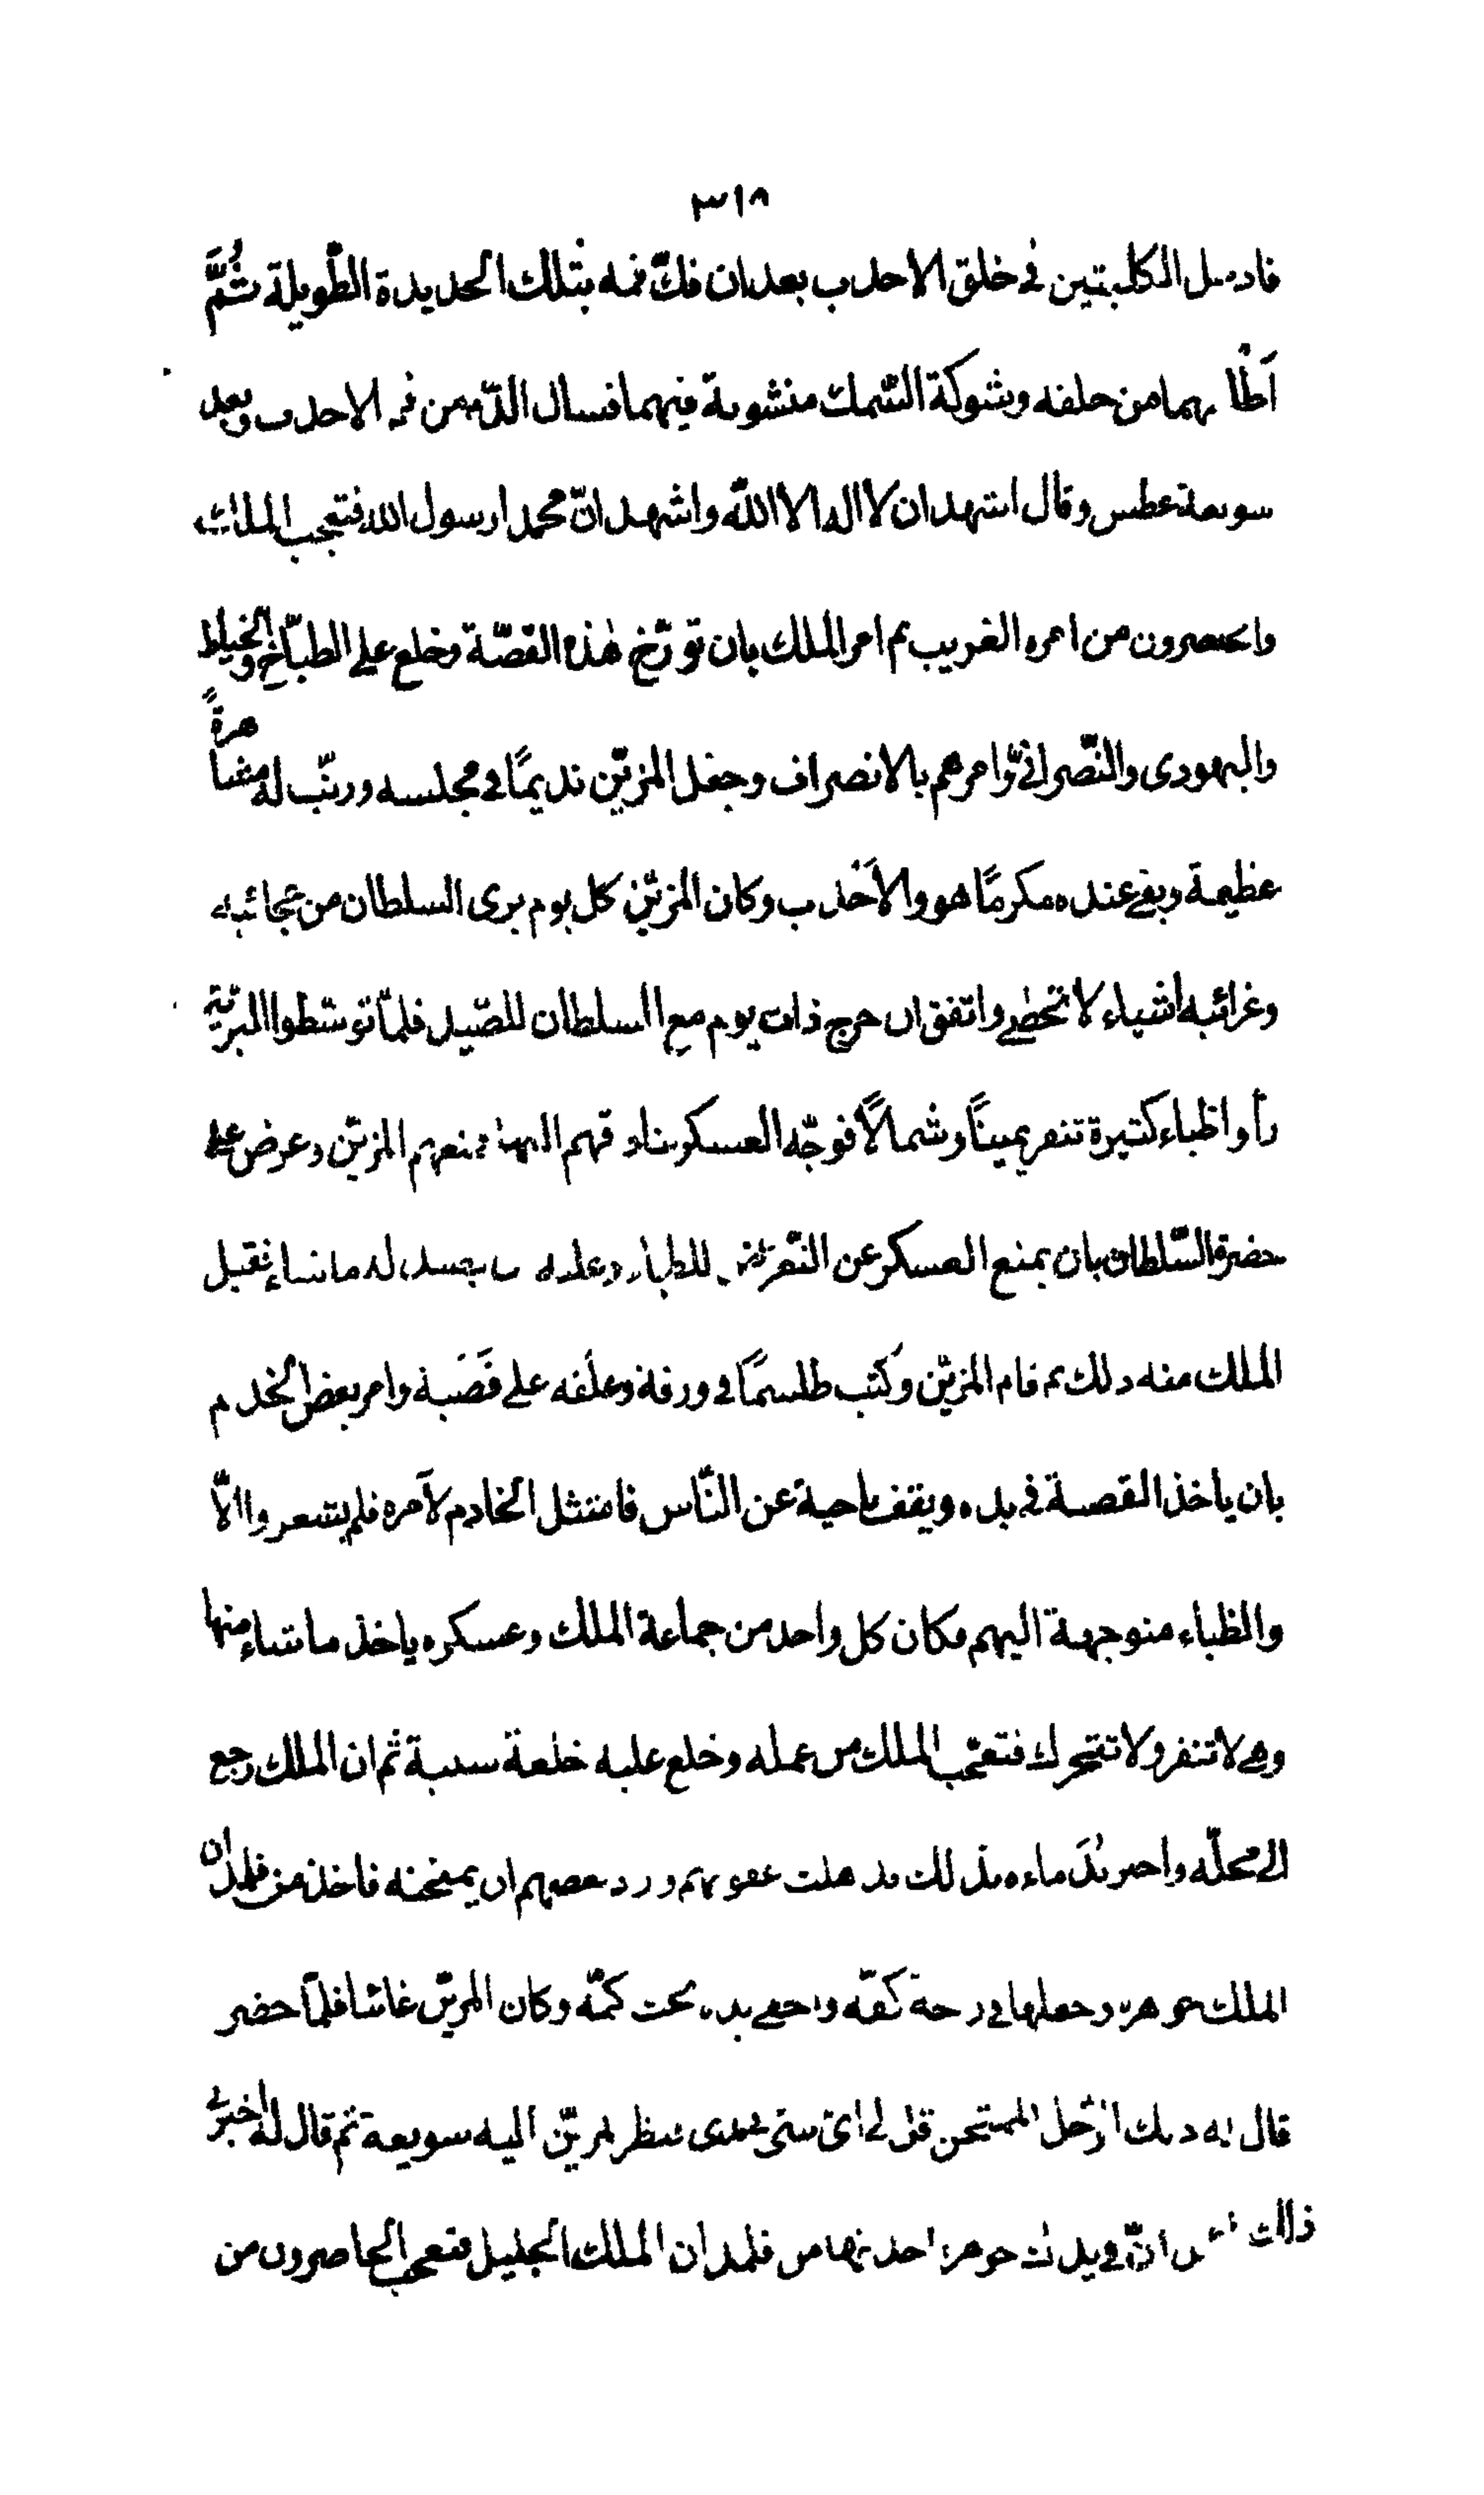 ٣١٨
فادخل الكلبتين في خلق الاحدب بعد ان فكّ فمه بتلك الحديدة الطّويلة ثُمَّ
بهما من حلقه وشوكة السّمك منشوبة فيهما فسال الدّم من فم الاحدب وبعد
سويعة عطس وقال اشهد ان لا اله الا اللّه واشهد انّ محمدا رسول الله فتعجب الملك
والحاضرون من امره الغريب ثم امر الملك بان تؤرّخ هٰذه القصّة وخلع على الطبّاخ والخياط
واليهودى والنّصرانىّ وامرهم بالانصراف وجعل المزيّن نديمًا فى مجلسه ورتّب له مشاهرةً
عظيمة وبقى عنده مكرمًا هو والاَحدب وكان المزيّن كل يوم يرى السلطان من عجائبه
وغرائبه اشياء لا تحصٰى واتفق ان خرج ذات يوم مع السلطان للصّيد فلمّا توسّطوا البريّة
رأوا ظباء كثيرة تنفر يمينًا وشمالًا فتوجّه العسكر بنادقهم اليها فمنعهم المزيّن وعرض على
حضرة السّلطان بان يمنع العسكر عن التعرّض للظباء وعليه ان يصيد له ما شاء فقبل
الملك منه ذلك ثم قام المزيّن وكَتب طلسمًا فى ورقة وعلّقه على قَصَبة وامر بعض الخدم
بان ياخذ القصبة فى يده ويقف ناحية عن النّاس فامتثل الخادم لاَمره فلم يشعروا الّا
والظباء متوجهة اليهم فكان كل واحد من جماعة الملك وعسكره ياخذ ما شاء منها
وهى لا تنفر ولا تتحرك فتعجّب الملك من عمله وخلع عليه خلعة سنية ثم ان الملك رجع
الى محلّه واخبر ندماءه بذلك فذهلت عقولهم وأراد بعضهم ان يمتحنه فاخذ من قلمدان
الملك جوهرة وجعلها فى راحة كفّه واخفى يده تحت كمّه وكان المزيّن غائبا فلمّا حضر
قال له ذلك الرّجل الممتحن قل لى اىّ شئ عندى فنظر المزيّن اليه سويعة ثم قال له اخبرك
ذلك انّ فى يدك جوهرة اخذتها من قلمدان الملك الجليل فتعجب الحاضرون من